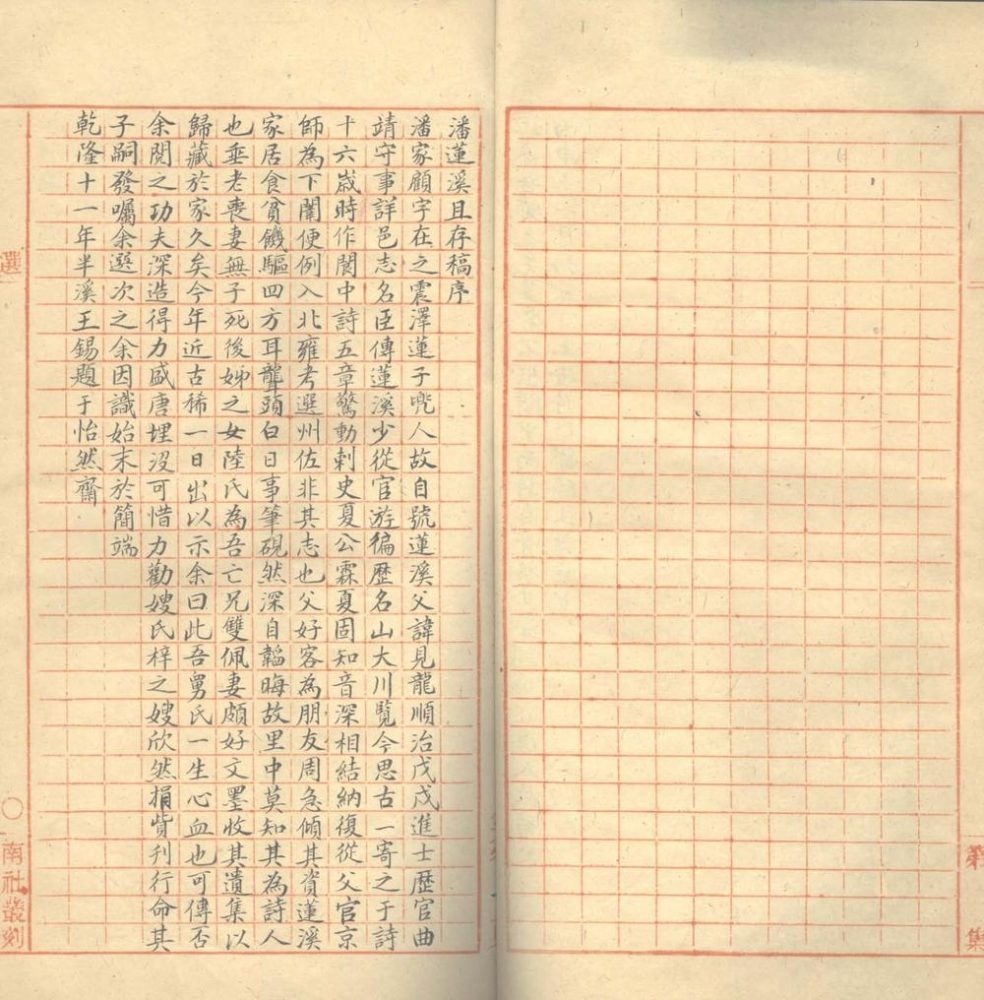 潘蓮溪且存稿序
潘家顧字在之震澤蓮子兠人故自號蓮溪父諱見龍順治戊戌進士歷官曲
靖守事詳邑志名臣傳蓮溪少從官游徧歷名山大川覽今思古一寄之于詩
十六歲時作閩中詩五章驚動刺史夏公霖夏固知音深相結納復從父官京
師為下闈便例入北雍考選州佐非其志也父好客為朋友周急傾其資蓮溪
家居食貧饑驅四方耳聾頭白日事筆硯然深自韜晦故里中莫知其為詩人
也垂老喪妻無子死後姊之女陸氏為吾亡兄雙佩妻頗好文墨收其遺集以
歸藏於家久矣今年近古稀一日出以示余曰此吾舅氏一生心血也可傳否
余閱之功夫深造得力盛唐埋沒可惜力勸嫂氏梓之嫂欣然捐貲刊行命其
子嗣發囑余選次之余因識始末於簡端
乾隆十一年半溪王錫題于怡然齋
選
〇
南社叢刻
集